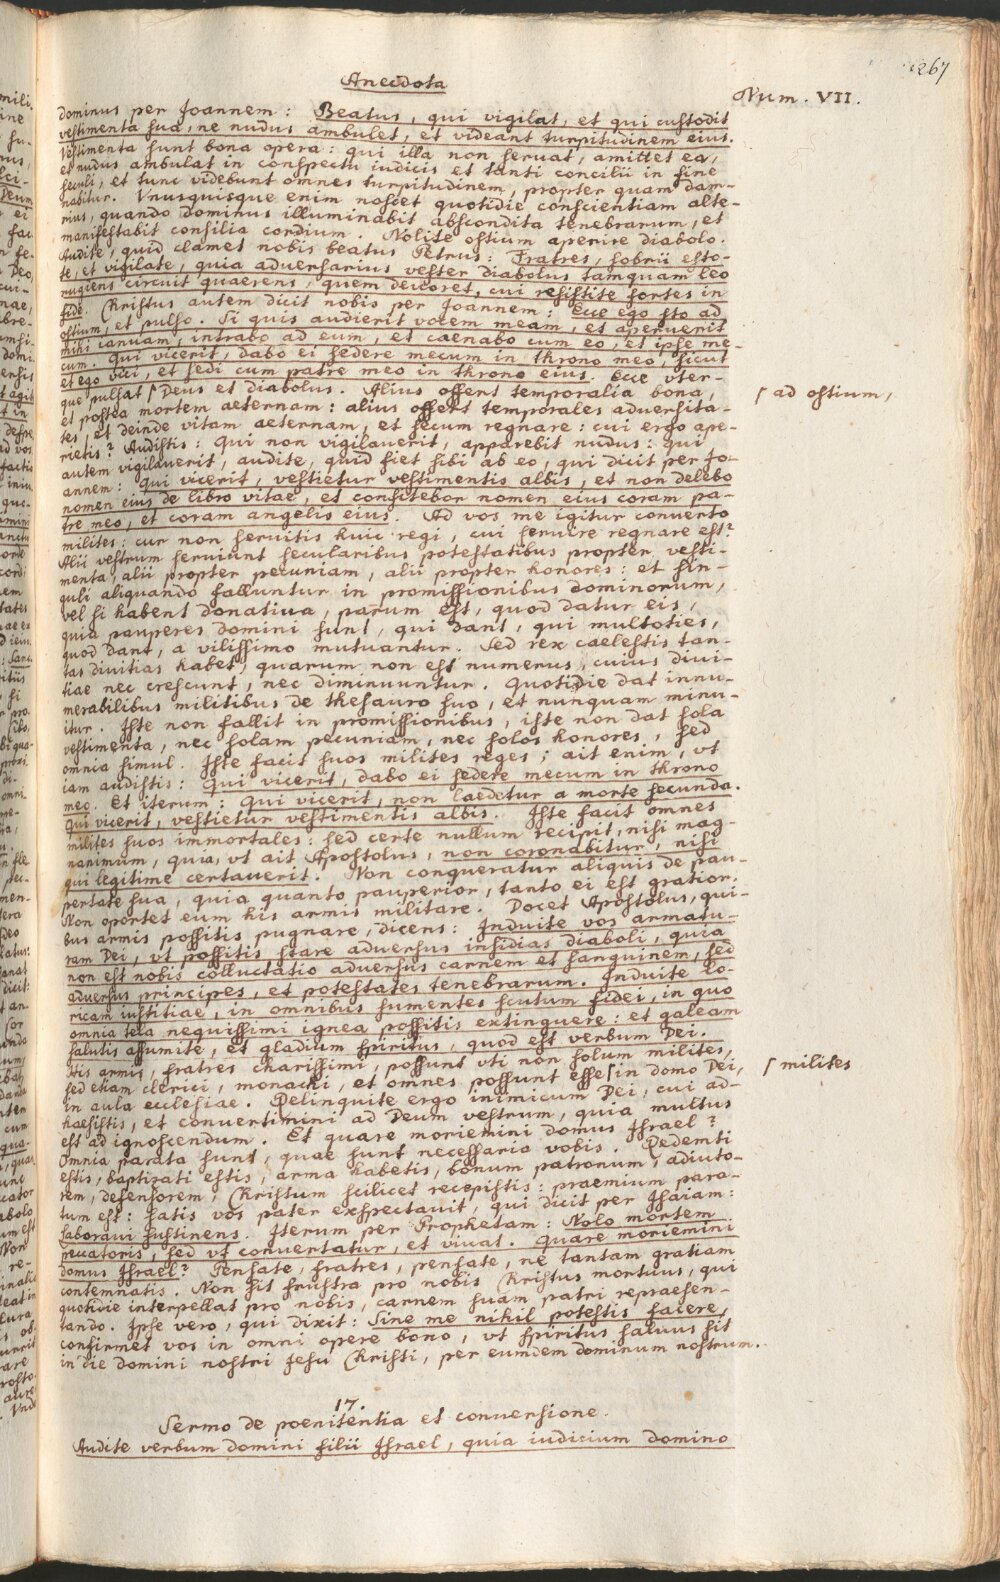 267
Anecdota
Num. VII.
dominus per Joannem: Beatus, qui vigilat, et qui custodit
vestimenta sua, ne nudus ambulet, et videant turpitudinem eius.
Vestimenta sunt bona opera: qui illa non seruat, amittet ea,
et nudus ambulat in conspectu iudicis et tanti concilii in fine
seculi, et tunc videbunt omnes turpitudinem, propter quam dam-
nabitur. Vnusquisque enim noscet quotidie conscientiam alte-
rius, quando dominus illuminabit abscondita tenebrarum, et
manifestabit consilia cordium. Nolite ostium aperire diabolo.
Audite, quid clamet nobis beatus Petrus: Fratres, sobrii esto-
te, et vigilate, quia aduersarius vester diabolus tamquam leo
rugiens circuit quaerens, quem deuoret, cui resistite fortes in
fide. Christus autem dicit nobis per Joannem: Ecce ego sto ad
ostium, et pulso. Si quis audierit vocem meam, et aperuerit
mihi ianuam, intrabo ad eum, et caenabo cum eo, et ipse me-
cum. Qui vicerit, dabo ei sedere mecum in throno meo, sicut
et ego vici, et sedi cum patre meo in throno eius. Ecce vter-
que pulsat ⌠ Deus et diabolus. Alius offert temporalia bona,
⌠ ad ostium,
et postea mortem aeternam: alius offert temporales aduersita-
tes, et deinde vitam aeternam, et secum regnare: cui ergo ape-
rietis? Audistis: Qui non vigilauerit, apparebit nudus: qui
autem vigilauerit, audite, quid fiet sibi ab eo, qui dicit per Jo-
annem: Qui vicerit, vestietur vestimentis albis, et non delebo
nomen eius de libro vitae, et confitebor nomen eius coram pa-
tre meo, et coram angelis eius. Ad vos me igitur conuerto
milites: cur non seruitis huic regi, cui seruire regnare est?
Alii vestrum seruiunt secularibus potestatibus propter vesti-
menta, alii propter pecuniam, alii propter honores: et sin-
guli aliquando falluntur in promissionibus dominorum,
vel si habent donatiua, parum est, quod datur eis,
quia pauperes domini sunt, qui dant, qui multoties,
quod dant, a vilissimo mutuantur. Sed rex caelestis tan-
tas diuitias habet, quarum non est numerus, cuius diui-
tiae nec crescunt, nec diminuuntur. Quotidie dat innu-
merabilibus militibus de thesauro suo, et nunquam minu-
itur. Iste non fallit in promissionibus, iste non dat sola
vestimenta, nec solam pecuniam, nec solos honores, sed
omnia simul. Iste facit suos milites reges; ait enim, vt
iam audistis: Qui vicerit, dabo ei sedere mecum in throno
meo. Et iterum: Qui vicerit, non laedetur a morte secunda.
Qui vicerit, vestietur vestimentis albis. Iste facit omnes
milites suos immortales: sed certe nullum recipit, nisi mag-
nanimum, quia, vt ait Apostolus, non coronabitur, nisi
qui legitime certauerit. Non conqueratur aliquis de pau-
pertate sua, quia quanto pauperior, tanto ei est gratior.
Non oportet eum his armis militare. Docet Apostolus, qui-
bus armis possitis pugnare, dicens: Induite vos armatu-
ram Dei, vt possitis stare aduersus insidias diaboli, quia
non est nobis colluctatio aduersus carnem et sanguinem, sed
aduersus principes, et potestates tenebrarum. Induite lo-
ricam iustitiae, in omnibus sumentes scutum fidei, in quo
omnia tela nequissimi ignea possitis extinguere: et galeam
salutis assumite, et gladium spiritus, quod est verbum Dei.
His armis, fratres charissimi, possunt vti non solum milites,
sed etiam clerici, monachi, et omnes possunt esse ⌠ in domo Dei,
⌠ milites
in aula ecclesiae. Relinquite ergo inimicum Dei, cui ad-
haesistis, et conuertimini ad Deum vestrum, quia multus
est ad ignoscendum. Et quare moriemini domus Israel?
Omnia parata sunt, quae sunt necessaria vobis. Redemti
estis, baptizati estis, arma habetis, bonum patronum, adiuto-
rem, defensorem, Christum scilicet recepistis: praemium para-
tum est: satis vos pater exspectauit, qui dicit per Isaiam:
Laboraui sustinens. Iterum per Prophetam: Nolo mortem
peccatoris, sed vt conuertatur, et viuat. Quare moriemini
domus Israel? Pensate, fratres, pensate, ne tantam gratiam
contemnatis. Non sit frustra pro nobis Christus mortuus, qui
quotidie interpellat pro nobis, carnem suam patri repraesen-
tando. Ipse vero, qui dixit: Sine me nihil potestis facere,
confirmet vos in omni opere bono, vt spiritus saluus sit
in die domini nostri Jesu Christi, per eumdem dominum nostrum.
17.
Sermo de poenitentia et conuersione.
Audite verbum domini filii Israel, quia iudicium domino